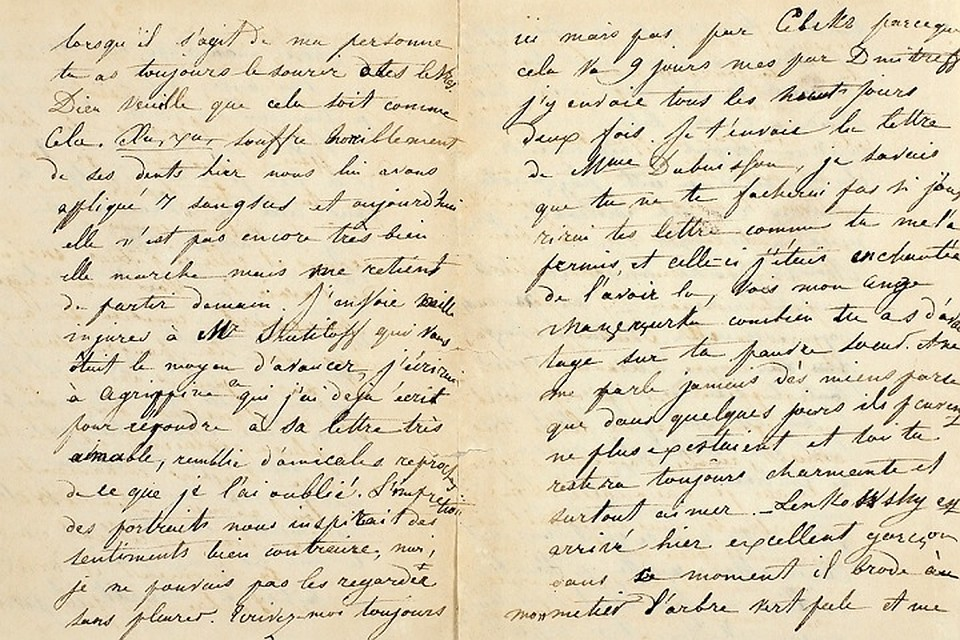 lorsqu'il s'agit de ma personne
tu as toujours le sourir des
Dieu veuille que cela soit comme
Cela. souffre horriblement
de ses dents hier nous lui avons
appliqué 7 sangsus et aujourd'hui
elle n'est pas encore très bien
elle marche mais me retient
de partir demain. J'envoie mille
injures à Mr qui vous
ôtent le moyen d'avancer, j'écrirai
à Agrippina qui j'ai déjà écrit
pour repondre à sa lettre très
aimable, remblie d'amicales
de ce que je l'ai oublié.
des portraits nous inspirait des
sentiments bien contreire, moi,
je ne pouvais pas les regarder
sans pleurer. Ecrivez-moi toujours
ici mais pas par parceque
cela va 9 jours mes par
j'y envoie tous les jours
deux fois. Je t'envoie la lettre
de Mme Dubuisson, je savais
que tu ne te facherai pas si
tes lettre comme tu me l'a
permis, et celle-ci j'étais enchantée
de l'avoir lu, vois mon ange
combien tu as
tage sur ta pauvre soeur.
me parle jamais dés miens parse
que dans quelques jours ils
ne plus et toi tu
restera toujours charmante et
surtout aimer. - Lenkowsky est
arrivé hier excellent garçon
dans ce moment il brode au
mon metier l'arbre vert et me